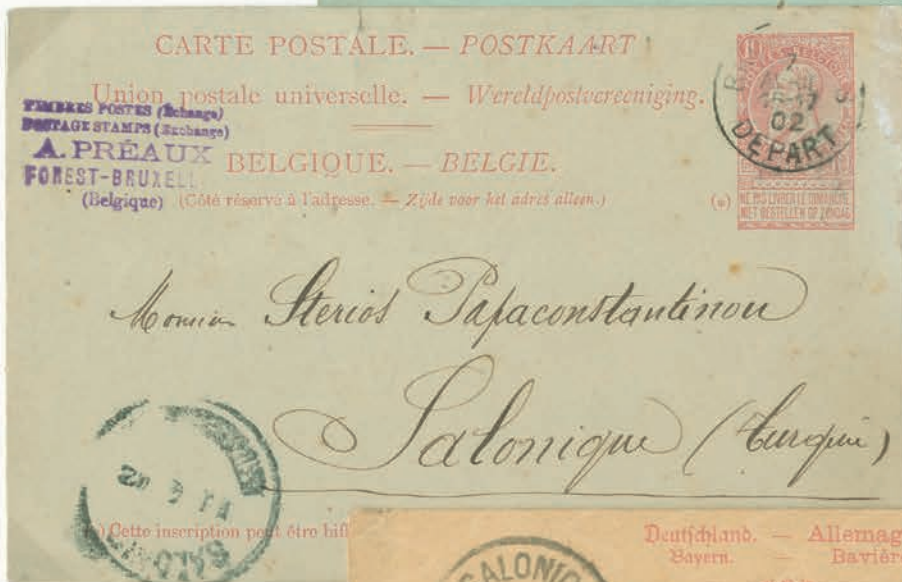 CARTE POSTALE. — POSTKAART
Union postale universelle. — Wereldpostvereeniging.
TIMBRES POSTES (Echange)
POSTAGE STAMPS (Exchange)
A. PRÉAUX
FOREST-BRUXELL
(Belgique)
BELGIQUE. — BELGIE.
(Côté réservé à l'adresse. — Zijde voor het adres alleen.)
(*)
NE PAS LIVRER LE DIMANCHE
NIET BESTELLEN OP ZONDAG
7
02
DEPART
Monsieur Sterios Papaconstantinou
Salonique (Turquie)
11 4 02
(*) Cette inscription peut être bif
Deutschland. — Allemag
Bayern. — Bavière
SALONIC